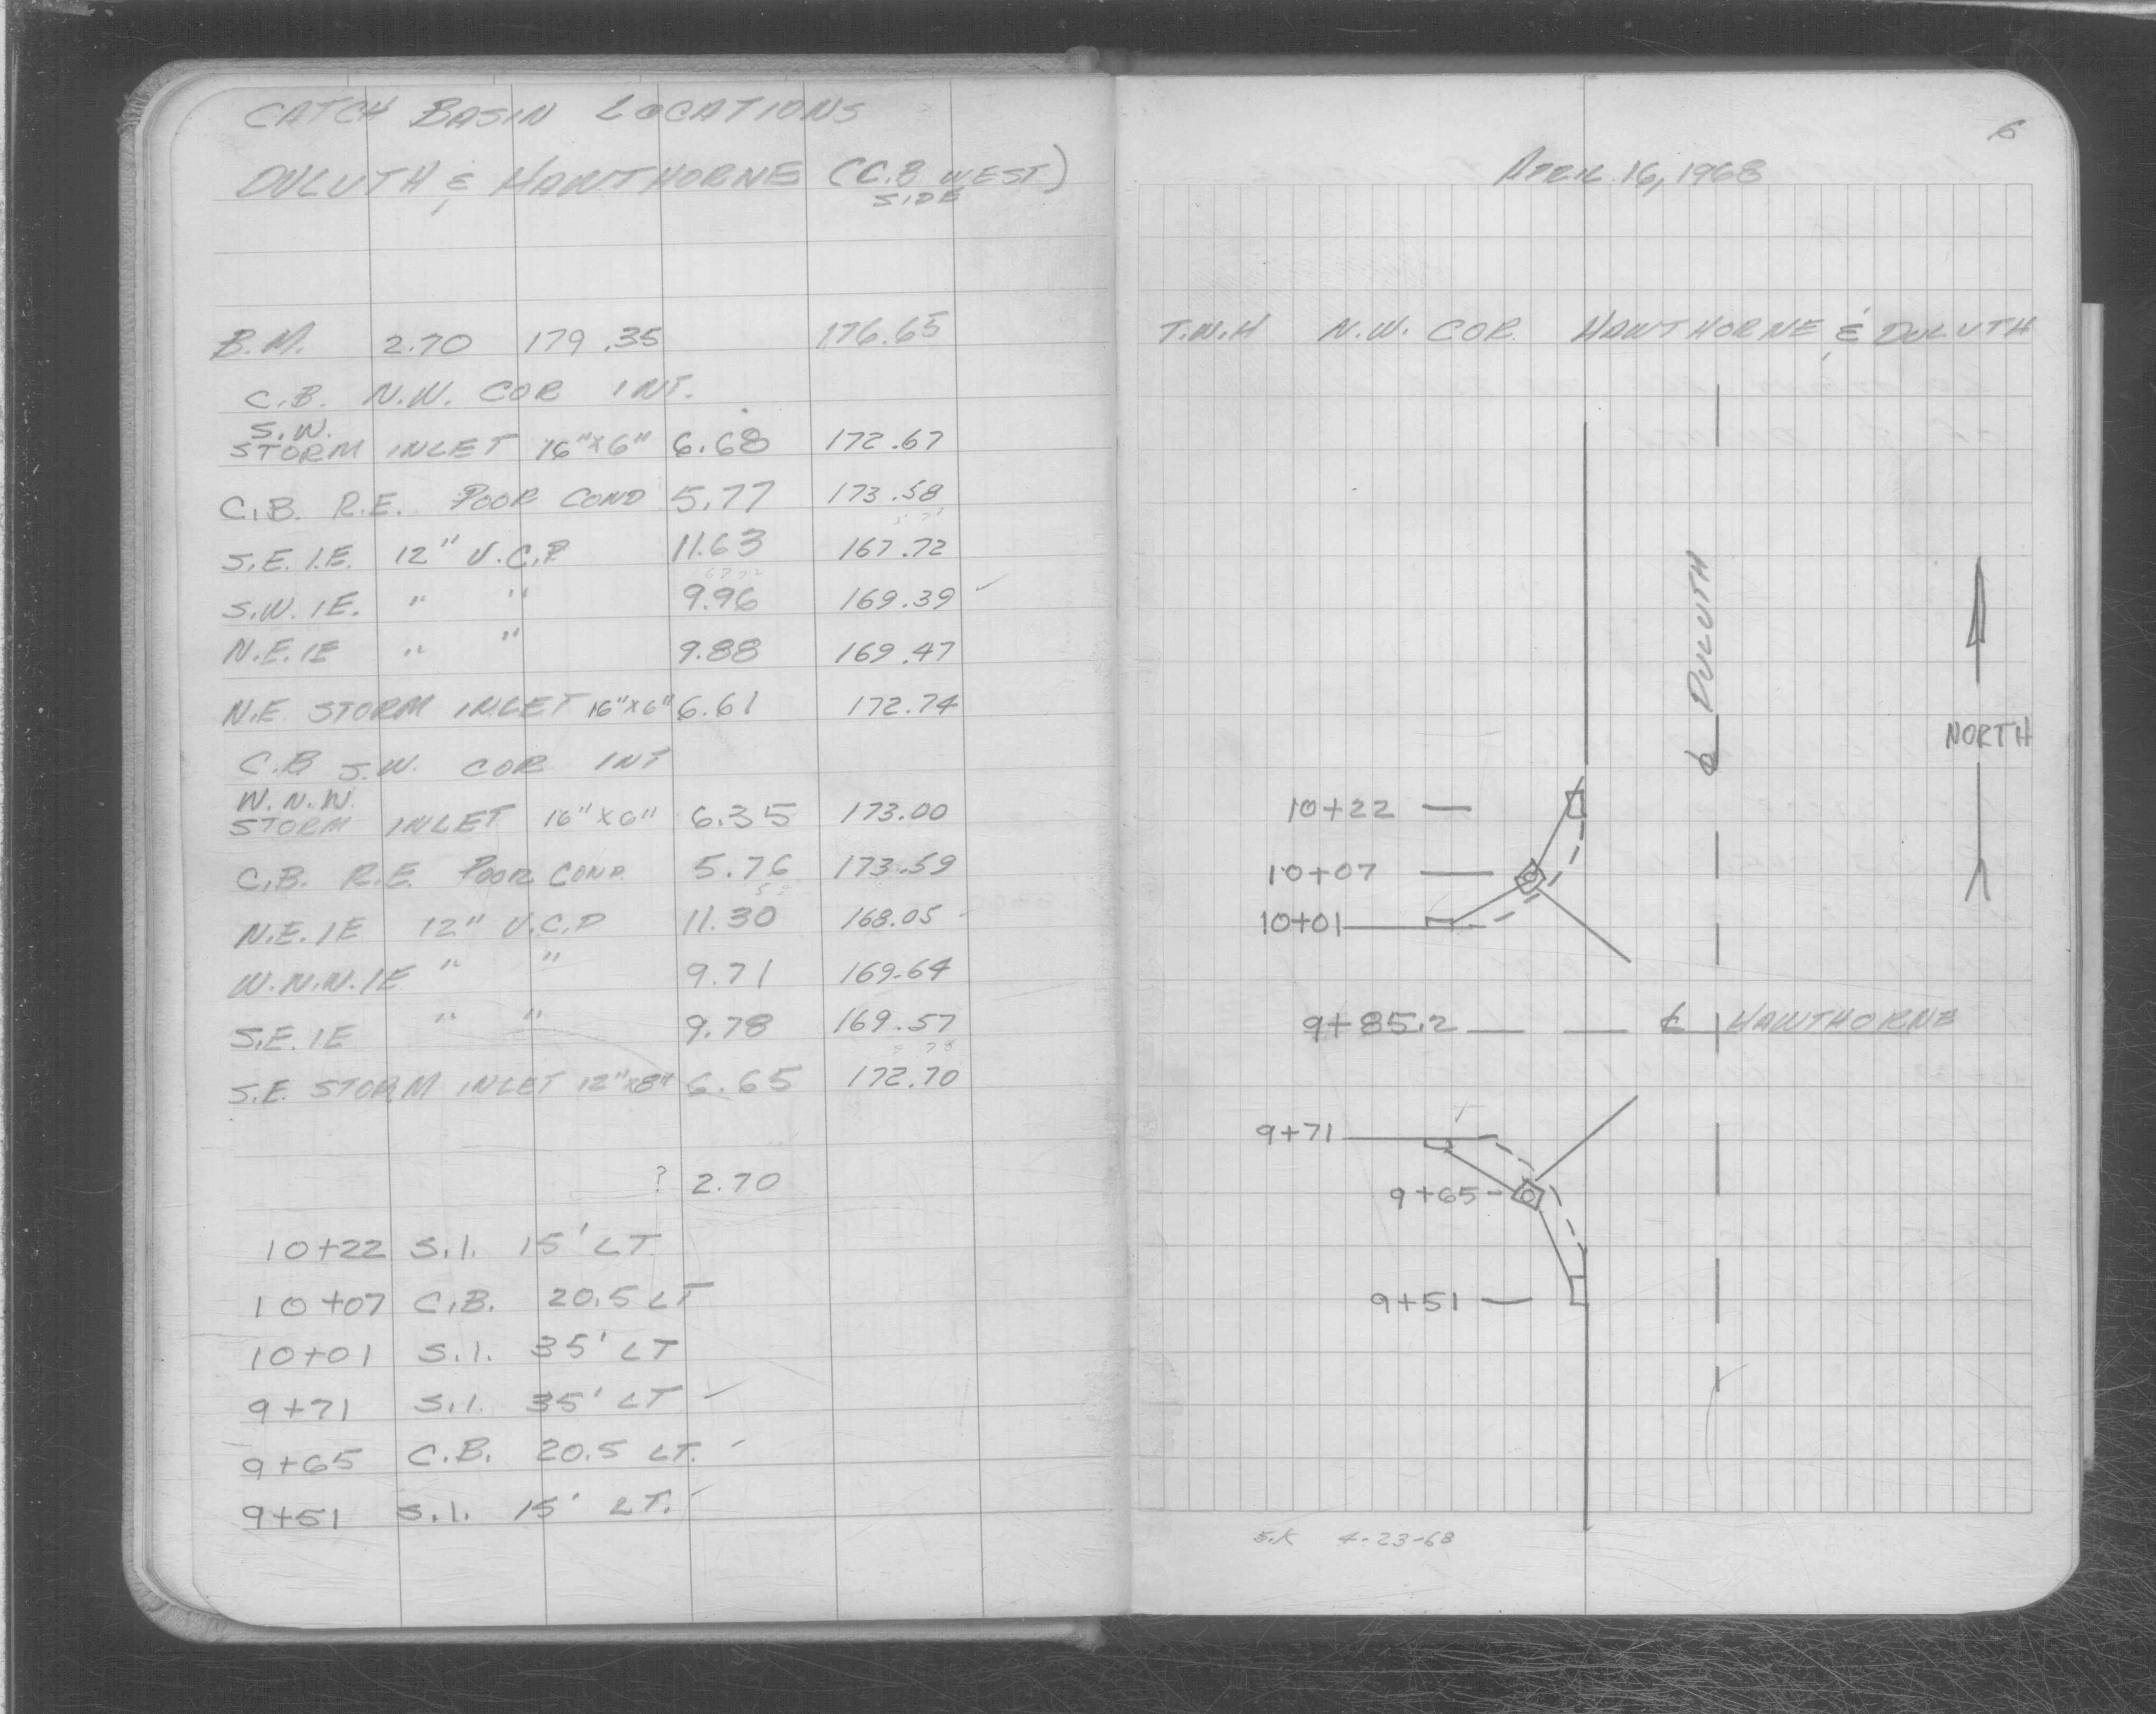 CATCH BASIN LOCATIONS
DULUTH & HAWTHORNE (C.B WEST)
SIDE
B.M. 2.70 179.35 176.65
C.B. N.W. COR INT.
S.W.
STORM INLET 16"X6" 6.68 172.67
C.B. R.E. POOR COND 5.77 173.58
S.E. I.E. 12" V.C.P 11.63 167.72
S.W. IE. " " 9.96 169.39
N.E. IE " " 9.88 169.47
N.E. STORM INLET 16"X6" 6.61 172.74
C.B S.W. COR INT
W.N.W.
STORM INLET 16"X6" 6.35 173.00
C.B. R.E. POOR COND. 5.76 173.59
N.E. IE 12" V.C.P 11.30 168.05
W.N.W. IE " " 9.71 169.64
S.E. IE " " 9.78 169.57
S.E. STORM INLET 12"X8" 6.65 172.70
? 2.70
10+22 S.I. 15' LT.
10+07 C.B. 20.5 LT
10+01 S.I. 35' LT
9+71 S.I. 35' LT
9+65 C.B. 20.5 LT.
9+51 S.I. 15' LT.
6
APRIL 16, 1968
T.N.H N.W. COR. HAWTHORNE & DULUTH
℄ DULUTH
NORTH
10+22
10+07
10+01
9+85.2 ℄ HAWTHORNE
9+71
9+65
9+51
S.K 4-23-68